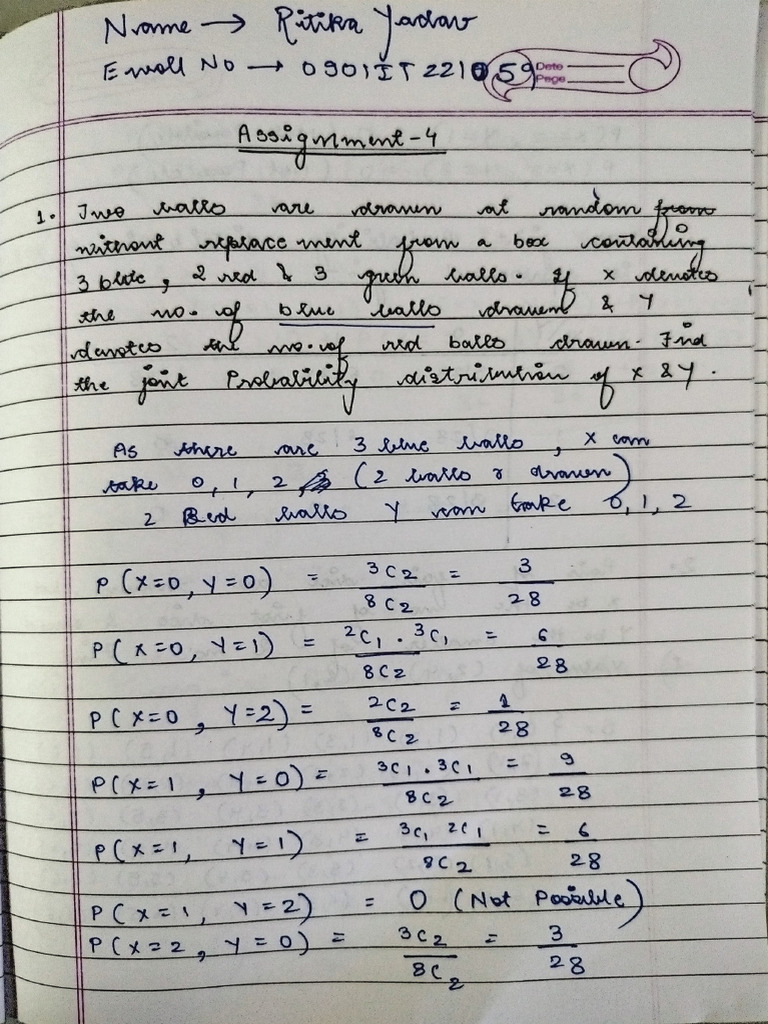 Name → Ritika Yadav
Enroll No → 0901IT221059
Date
Page
Assignment-4
1. Two balls are drawn at random from
without replacement from a box containing
3 blue, 2 red & 3 green balls. If X denotes
the no. of blue balls drawn & Y
denotes the no. of red balls drawn. Find
the joint Probability distribution of X & Y.
As there are 3 blue balls, X can
take 0, 1, 2 (2 balls r drawn)
2 Red balls Y can take 0, 1, 2
P(X=0, Y=0) = 3C2/8C2 = 3/28
P(X=0, Y=1) = 2C1 . 3C1/8C2 = 6/28
P(X=0, Y=2) = 2C2/8C2 = 1/28
P(X=1, Y=0) = 3C1 . 3C1/8C2 = 9/28
P(X=1, Y=1) = 3C1 2C1/8C2 = 6/28
P(X=1, Y=2) = 0 (Not Possible)
P(X=2, Y=0) = 3C2/8C2 = 3/28